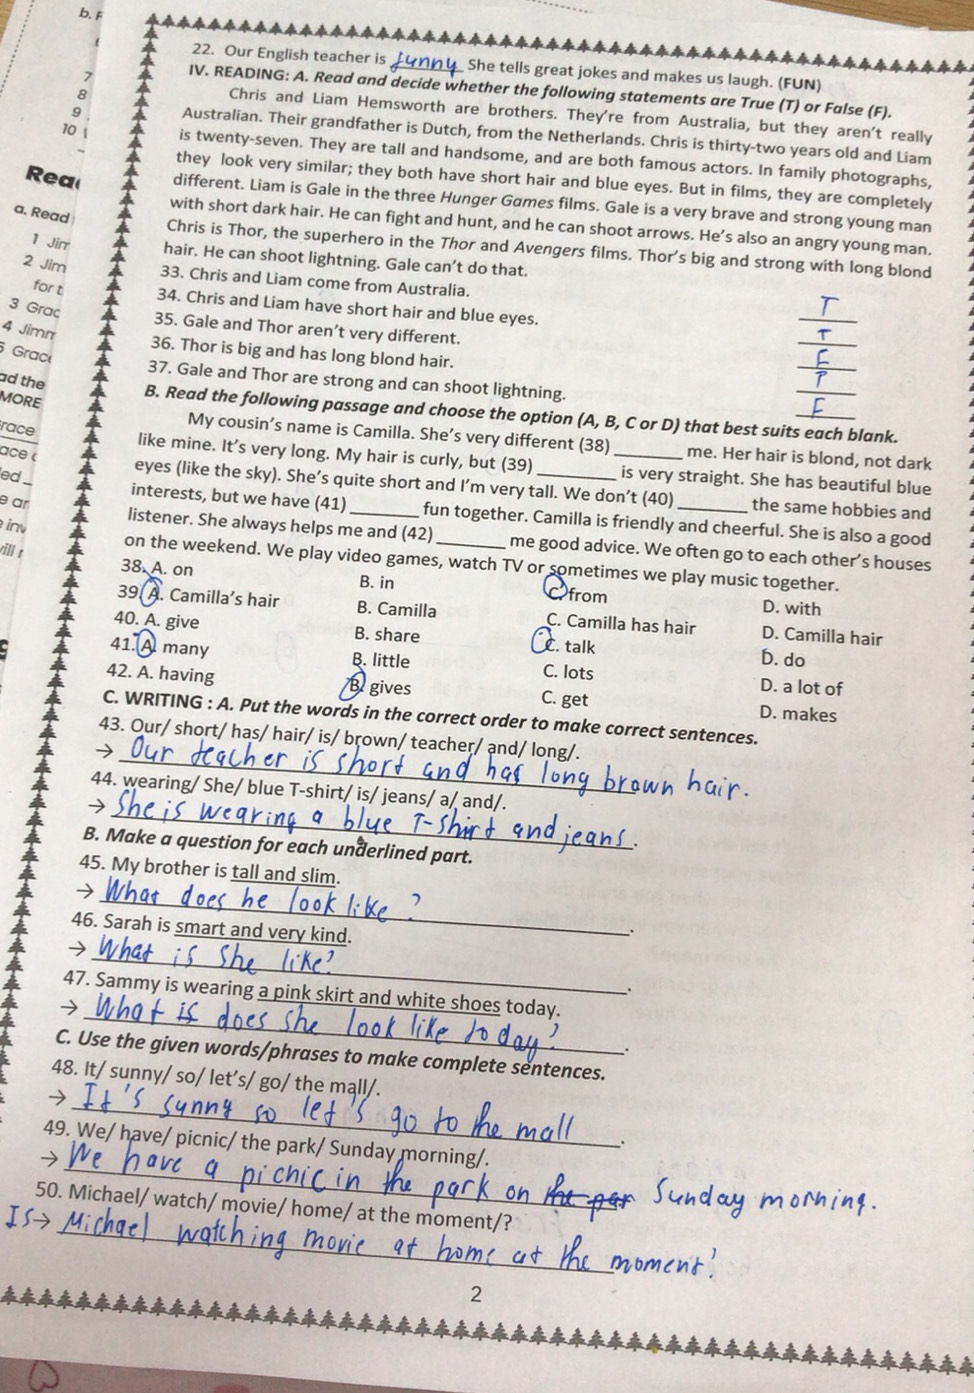 b. F
7
8
9
10
Read
a. Read
1 Jim
2 Jim
for t
3 Grac
4 Jimm
5 Grace
ad the
MORE
race
ace
ed
e ar
e inv
22. Our English teacher is funny She tells great jokes and makes us laugh. (FUN)
IV. READING: A. Read and decide whether the following statements are True (T) or False (F).
Chris and Liam Hemsworth are brothers. They're from Australia, but they aren't really
Australian. Their grandfather is Dutch, from the Netherlands. Chris is thirty-two years old and Liam
is twenty-seven. They are tall and handsome, and are both famous actors. In family photographs,
they look very similar; they both have short hair and blue eyes. But in films, they are completely
different. Liam is Gale in the three Hunger Games films. Gale is a very brave and strong young man
with short dark hair. He can fight and hunt, and he can shoot arrows. He's also an angry young man.
Chris is Thor, the superhero in the Thor and Avengers films. Thor's big and strong with long blond
hair. He can shoot lightning. Gale can't do that.
33. Chris and Liam come from Australia. T
34. Chris and Liam have short hair and blue eyes. T
35. Gale and Thor aren't very different. F
36. Thor is big and has long blond hair. T
37. Gale and Thor are strong and can shoot lightning. F
B. Read the following passage and choose the option (A, B, C or D) that best suits each blank.
My cousin's name is Camilla. She's very different (38) ________ me. Her hair is blond, not dark
like mine. It's very long. My hair is curly, but (39) ________ is very straight. She has beautiful blue
eyes (like the sky). She's quite short and I'm very tall. We don't (40) ________ the same hobbies and
interests, but we have (41) ________ fun together. Camilla is friendly and cheerful. She is also a good
listener. She always helps me and (42) ________ me good advice. We often go to each other's houses
on the weekend. We play video games, watch TV or sometimes we play music together.
38. A. on B. in C. from D. with
39. A. Camilla's hair B. Camilla C. Camilla has hair D. Camilla hair
40. A. give B. share C. talk D. do
41. A. many B. little C. lots D. a lot of
42. A. having B. gives C. get D. makes
C. WRITING : A. Put the words in the correct order to make correct sentences.
43. Our/ short/ has/ hair/ is/ brown/ teacher/ and/ long/.
→ Our teacher is short and has long brown hair.
44. wearing/ She/ blue T-shirt/ is/ jeans/ a/ and/.
→ She is wearing a blue T-shirt and jeans.
B. Make a question for each underlined part.
45. My brother is tall and slim.
→ What does he look like ? .
46. Sarah is smart and very kind.
→ What is she like? .
47. Sammy is wearing a pink skirt and white shoes today.
→ What is does she look like today? .
C. Use the given words/phrases to make complete sentences.
48. It/ sunny/ so/ let's/ go/ the mall/.
→ It's sunny so let's go to the mall .
49. We/ have/ picnic/ the park/ Sunday morning/.
→ We have a picnic in the park on the par Sunday morning.
50. Michael/ watch/ movie/ home/ at the moment/?
Is → Michael watching movie at home at the moment?
2